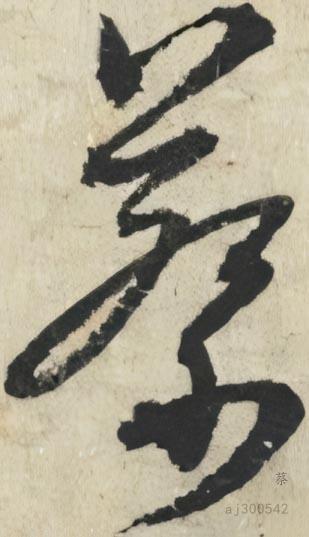 蔡
蔡
aj300542